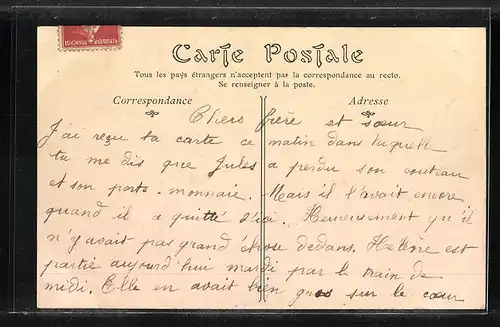 Carte Postale
Tous les pays étrangers n'acceptent pas la correspondance au recto.
Se renseigner à la poste.
Correspondance
Adresse
Chers frère et sœur
J'ai reçu ta carte ce matin dans laquell
tu me dis que Jules a perdu son couteau
et son porte-monnaie. Mais il l'avait encore
quand il a quitté d'ici. Heureusement qu'il
n'y avait pas grand chose dedans. Helène est
partie aujourd'hui mardi par le train de
midi. Elle en avait bien gros sur le cœur